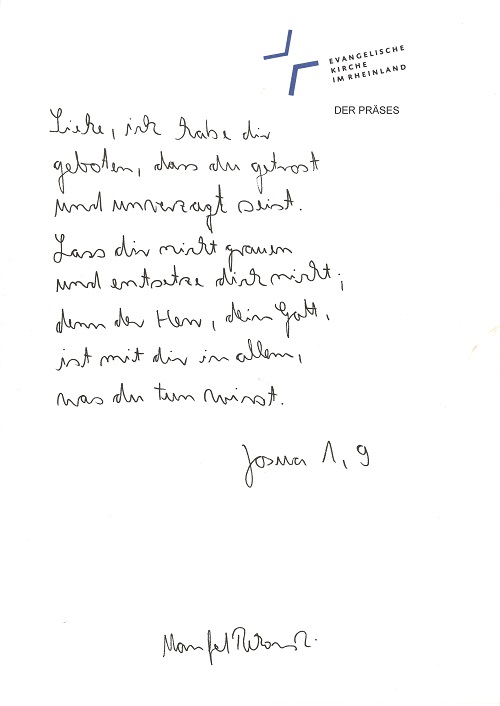 EVANGELISCHE
KIRCHE
IM RHEINLAND
DER PRÄSES
Siehe, ich habe dir
geboten, dass du getrost
und unverzagt seist.
Lass dir nicht grauen
und entsetze dich nicht;
denn der Herr, dein Gott,
ist mit dir in allem,
was du tun wirst.
Josua 1, 9
Manfred Rekowski